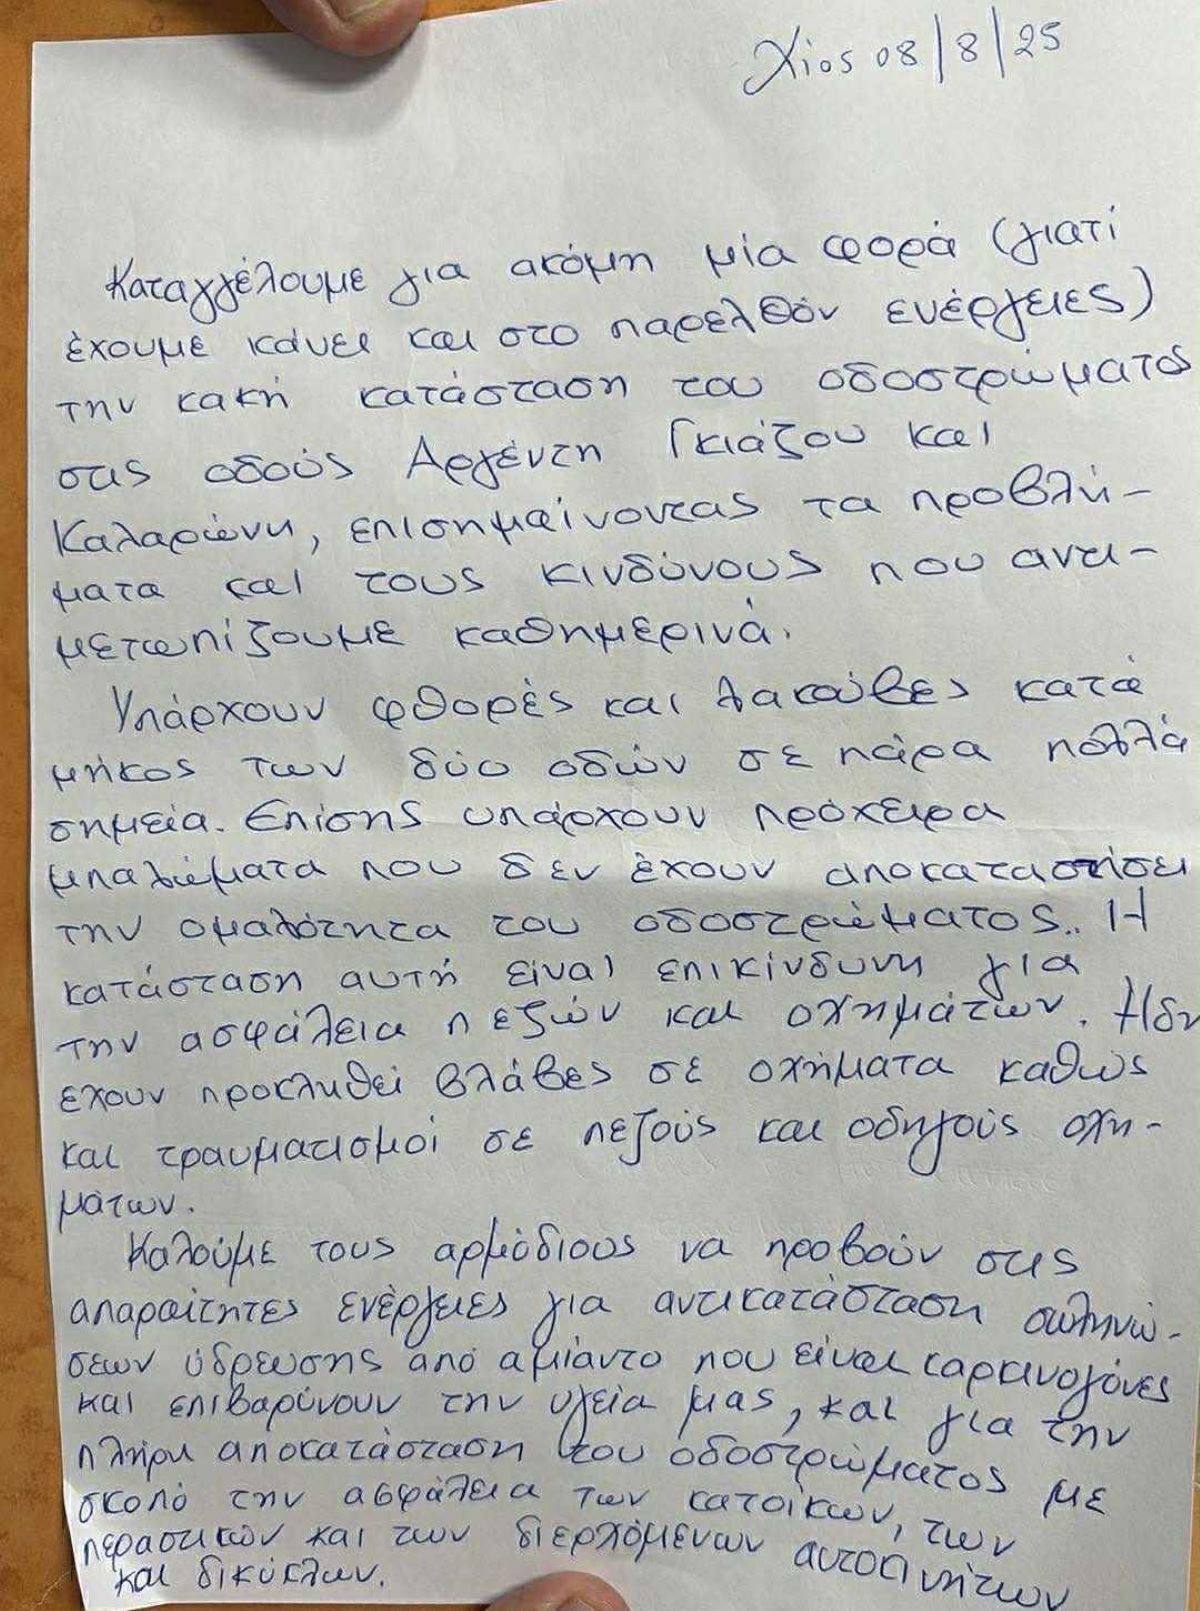 Χίος 08/8/25
Καταγγέλουμε για ακόμη μία φορά (γιατί
έχουμε κάνει και στο παρελθόν ενέργειες)
την κακή κατάσταση του οδοστρώματος
στις οδούς Αργέντη Γκιάζου και
Καλαρώνη, επισημαίνοντας τα προβλή-
ματα και τους κινδύνους που αντι-
μετωπίζουμε καθημερινά.
Υπάρχουν φθορές και λακούβες κατά
μήκος των δύο οδών σε πάρα πολλά
σημεία. Επίσης υπάρχουν πρόχειρα
μπαλώματα που δεν έχουν αποκαταστήσει
την ομαλότητα του οδοστρώματος.. Η
κατάσταση αυτή είναι επικίνδυνη για
την ασφάλεια πεζών και οχημάτων. Ήδη
έχουν προκληθεί βλάβες σε οχήματα καθώς
και τραυματισμοί σε πεζούς και οδηγούς οχη-
μάτων.
Καλούμε τους αρμόδιους να προβούν στις
απαραίτητες ενέργειες για αντικατάσταση σωληνώ-
σεων ύδρευσης από αμίαντο που είναι καρκινογόνες
και επιβαρύνουν την υγεία μας, και για την
πλήρη αποκατάσταση του οδοστρώματος με
σκοπό την ασφάλεια των κατοίκων, των
περαστικών και των διερχόμενων αυτοκινήτων
και δικύκλων.